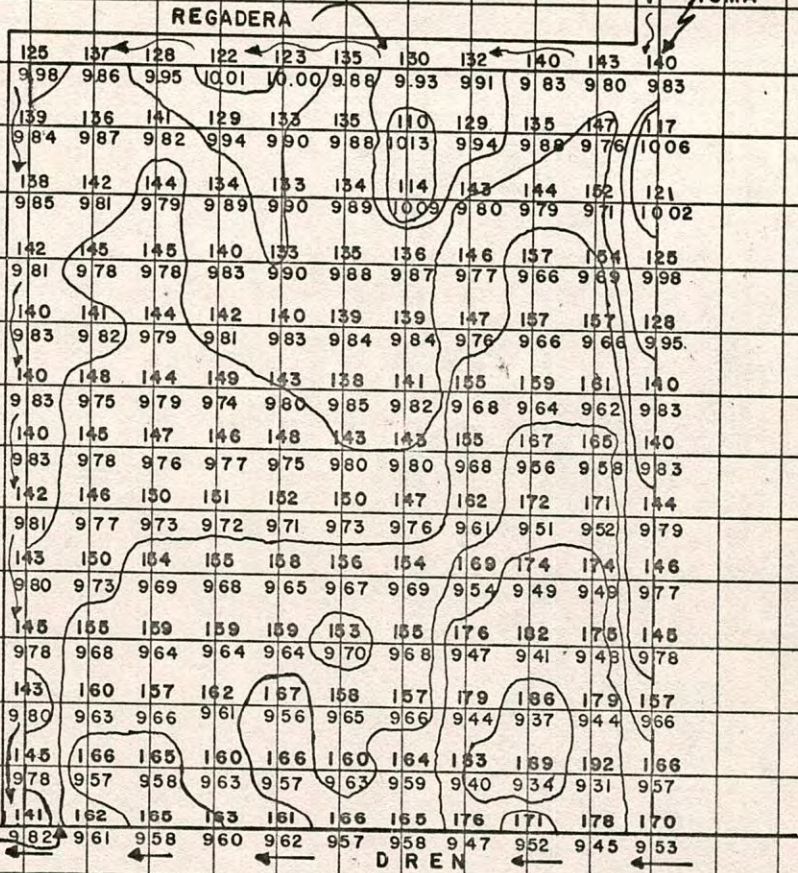 TOMA
REGADERA
125 137 128 122 123 135 130 132 140 143 140
9.98 9.86 9.95 10.01 10.00 9.88 9.93 9.91 9.83 9.80 9.83
139 136 141 129 133 135 110 129 135 147 117
9.84 9.87 9.82 9.94 9.90 9.88 10.13 9.94 9.88 9.76 10.06
138 142 144 134 133 134 114 143 144 152 121
9.85 9.81 9.79 9.89 9.90 9.89 10.09 9.80 9.79 9.71 10.02
142 145 145 140 133 135 136 146 157 154 125
9.81 9.78 9.78 9.83 9.90 9.88 9.87 9.77 9.66 9.69 9.98
140 141 144 142 140 139 139 147 157 157 128
9.83 9.82 9.79 9.81 9.83 9.84 9.84 9.76 9.66 9.66 9.95
140 148 144 149 143 138 141 155 159 161 140
9.83 9.75 9.79 9.74 9.80 9.85 9.82 9.68 9.64 9.62 9.83
140 145 147 146 148 143 143 155 167 165 140
9.83 9.78 9.76 9.77 9.75 9.80 9.80 9.68 9.56 9.58 9.83
142 146 150 151 152 150 147 162 172 171 144
9.81 9.77 9.73 9.72 9.71 9.73 9.76 9.61 9.51 9.52 9.79
143 150 154 155 158 156 154 169 174 174 146
9.80 9.73 9.69 9.68 9.65 9.67 9.69 9.54 9.49 9.49 9.77
145 155 159 159 159 153 155 176 182 175 145
9.78 9.68 9.64 9.64 9.64 9.70 9.68 9.47 9.41 9.48 9.78
143 160 157 162 167 158 157 179 186 179 157
9.80 9.63 9.66 9.61 9.56 9.65 9.66 9.44 9.37 9.44 9.66
145 166 165 160 166 160 164 183 189 192 166
9.78 9.57 9.58 9.63 9.57 9.63 9.59 9.40 9.34 9.31 9.57
141 162 165 163 161 166 165 176 171 178 170
9.82 9.61 9.58 9.60 9.62 9.57 9.58 9.47 9.52 9.45 9.53
DREN